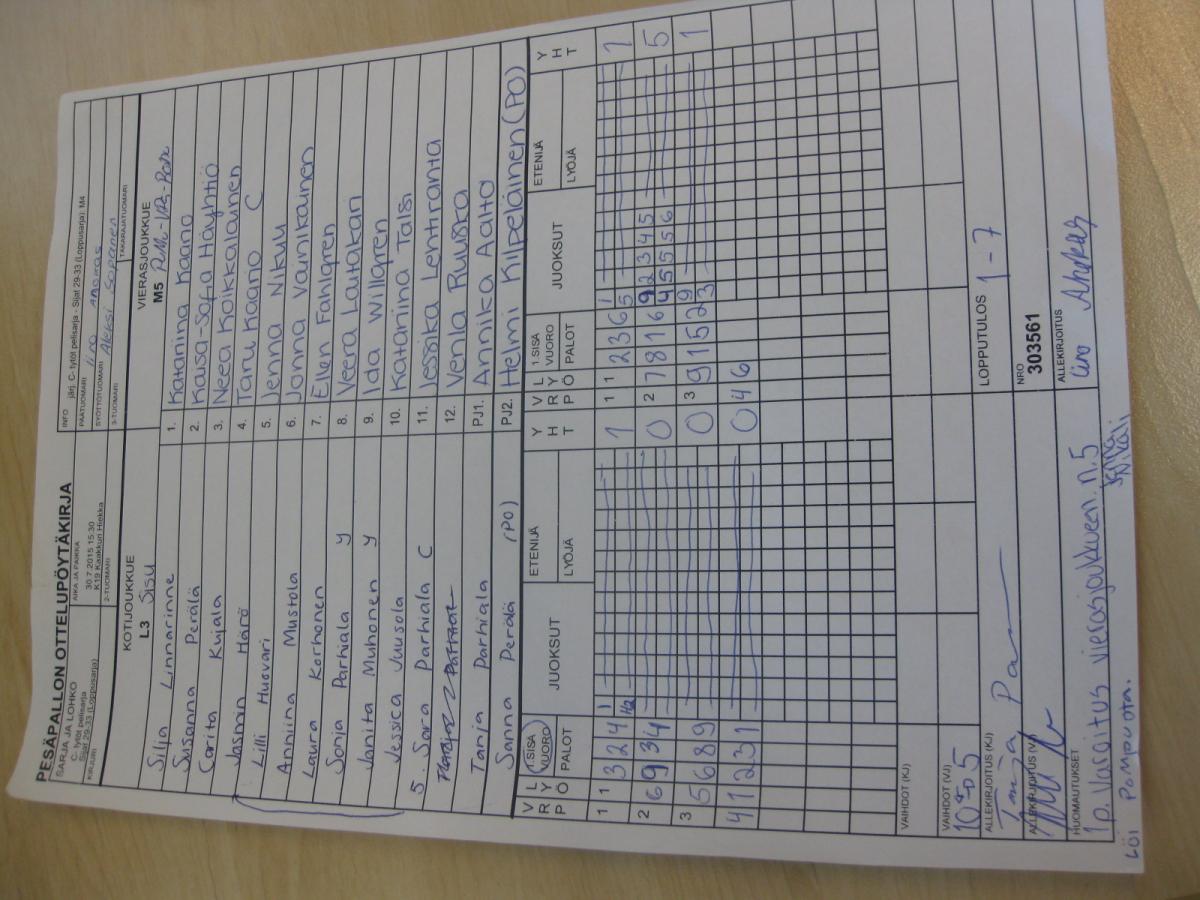 PESÄPALLON OTTELUPÖYTÄKIRJA
SARJA JA LOHKO
C- tytöt pelisarja
Sijat 29-33 (Loppusarja)
AIKA JA PAIKKA
30.7.2015 15:30
K19 Kaakkuri Hiekka
INFO järj. C- tytöt pelisarja - Sijat 29-33 (Loppusarja): M4
PÄÄTUOMARI
SYÖTTÖTUOMARI Aleksi Soranen
KIRJURI
2-TUOMARI
3-TUOMARI
TAKARAJATUOMARI
KOTIJOUKKUE
L3 Sisu
VIERASJOUKKUE
M5
Silja Linnarinne
1. Kataniina Kaano
Susanna Perälä
2. Kaisa-Sofia Häyhtiö
Carita Kujala
3. Neea Koikkalainen
Jasmin Härö
4. Taru Kaario C
Lilli Husvari
5. Jenna Nikuli
Anniina Mustola
6. Jonna Vainikainen
Laura Korhonen
7. Ellen Fahlgren
Sonja Parhiala y
8. Veera Lautakari
Janita Muhonen y
9. Ida Willgren
Jessica Juusola
10. Katariina Talsi
5. Sara Parhiala C
11. Jessika Lehtiranta
12. Venla Ruuska
Tanja Parhiala
PJ1. Annika Aalto
Sanna Perälä (PO)
PJ2. Helmi Kilpeläinen (PO)
V R P
L Y Ö
1 SISÄ VUORO
PALOT
JUOKSUT
ETENIJÄ
LYÖJÄ
Y H T
V R P
L Y Ö
1 SISÄ VUORO
PALOT
JUOKSUT
ETENIJÄ
LYÖJÄ
Y H T
1 1 3 2 4 1 1
1 1 2 3 6 1 5 1
2 6 9 3 4 0
2 7 8 1 6 9 2 3 4 5 4 5 5 5 6 5
3 5 6 8 9 0
3 9 1 5 2 9 3 1
4 1 2 3 1 0
0 4 6
VAIHDOT (KJ)
VAIHDOT (VJ)
LOPPUTULOS 1 - 7
ALLEKIRJOITUS (KJ)
NRO
303561
ALLEKIRJOITUS (VJ)
ALLEKIRJOITUS
HUOMAUTUKSET
1p. Varoitus vierasjoukkueen n.5
Jenna Nikuli
Löi pomputa.